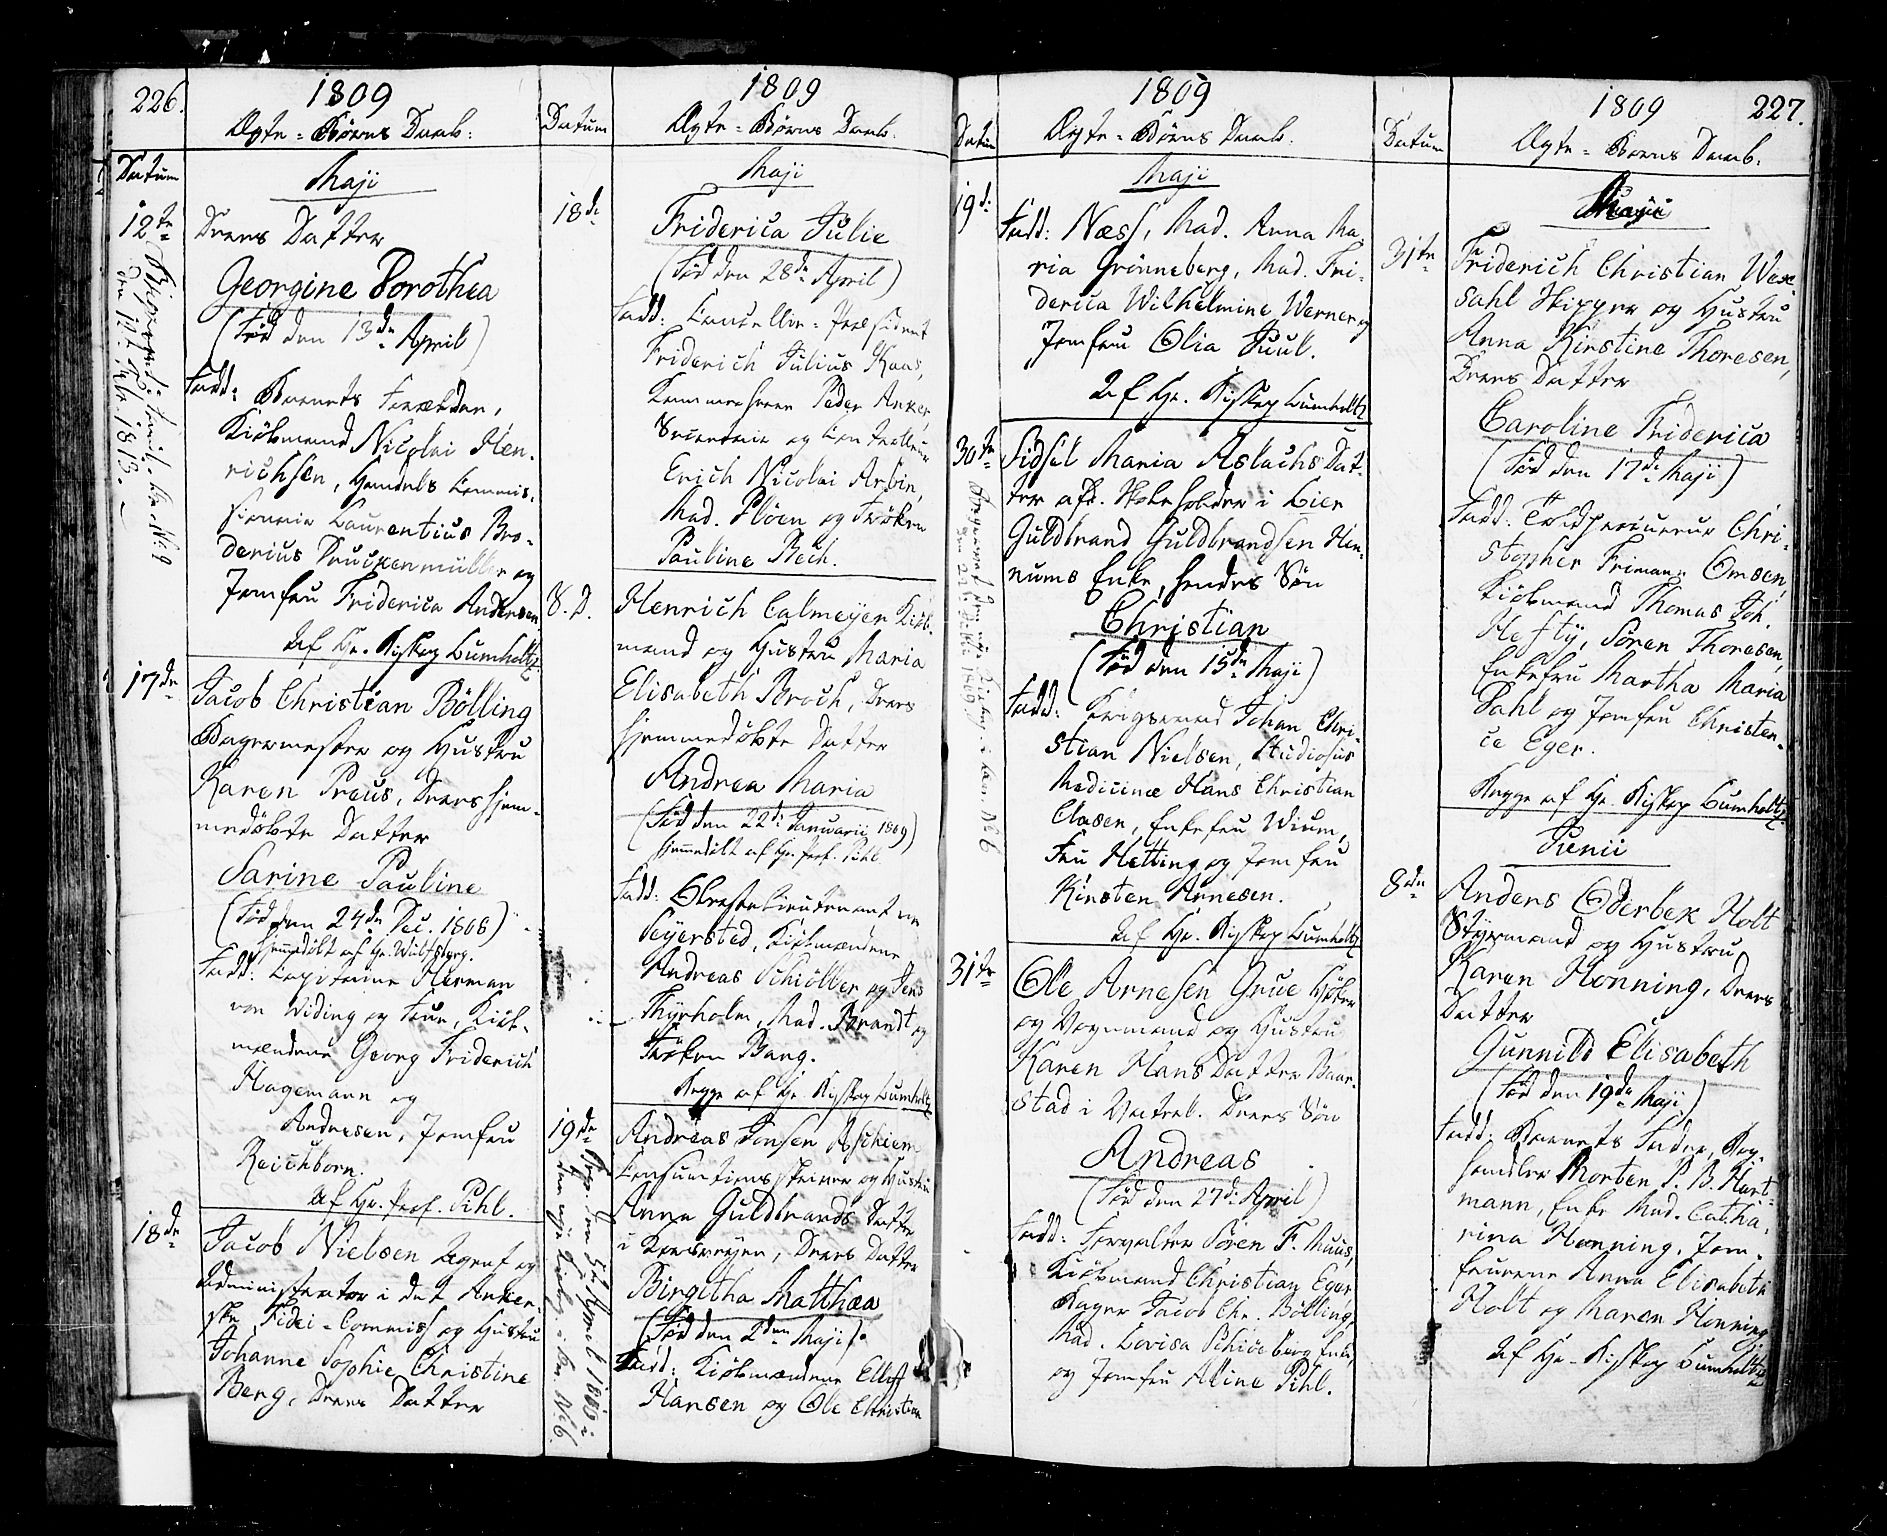 226.
1809
Ægte-Børns Daab:
Datum
Maji
12te
Deres Datter
Georgine Dorothea
(Fød den 13de April)
Fadd: Barnets Forældre,
Kiøbmand Nicolai Hen-
richsen, Handels Commis-
sionair Laurentius Bro-
derius Druckenmüller og
Jomfru Friderica Andersen
af Hr. Biskop Bumholtz.
17de
Jacob Christian Bölling
Bagermester og Hustru
Karen Preus, Deres hjem-
medøbte Datter
Sarine Pauline
(Fød den 24de Dec. 1808)
hjemmedøbt af Hr. Wulfsberg.
Fadd: Capitaine Herman
von Widing og Frue, Kiøb-
mændene Georg Friderich
Hagemann og
Andresen, Jomfru
Reichborn.
af Hr. Prof. Pihl.
18de
Jacob Nielsen Agent og
Administrator i det Anker-
ske Fidei-Commiss og Hustru
Johanne Sophie Christine
Berg, Deres Datter
1809
Datum
Ægte-Børns Daab.
Maji
18de
Friderica Julie
(Fød den 28de April)
Fadd: Cancellie-Præsident
Friderich Julius Kaas,
Kammerherre Peder Anker,
Erich Nicolai Arbin,
Mad. Pløen og Frøken
Pauline Bech.
8. D.
Henrich Calmeyer Kiøb-
mand og Hustru Maria
Elisabeth Broch, Deres
hjemmedøbte Datter
Andrea Maria
(Fød den 22de Januarii 1809)
hjemmedøbt af Hr. Prof. Pihl
Fadd: Obrestelieutenant von
Seyersted, Kiøbmændene
Andreas Schiölber og Jens
Thyrholm, Mad. Brandt og
Frøken Bang.
Begge af Hr. Biskop Bumholtz
19de
Andreas Jonsen Aschiem
Consumtionsskriver og Hustru
Anna Guldbrands Datter
i Deres Datter
Birgitha Matthea
(Fød den 2den Maji).
Fadd: Kiøbmændene Elleff
Hansen og Ole Christian
1809
Datum
Ægte-Børns Daab.
Maji
19de
Fadd: Næss, Mad. Anna Ma-
ria Grönneberg, Mad. Fri-
dericia Wilhelmine Werner og
Jomfru Olia Juul.
af Hr. Biskop Bumholtz
30te
Sidsel Maria Aslachs Dat-
ter afd. i Lier
Guldbrand Guldbrandsen Hen-
nums Enke, hendes Søn
Christian
(Fød den 15de Maji)
Fadd: Krigsraad Johan Chri-
stian Nielsen, Studiosus
Medicinæ Hans Christian
Clasen, Enkefru Wium,
Fru Hetting og Jomfru
Kirsten Arnesen.
af Hr. Biskop Bumholtz
31te
Ole Arnesen Grue Høker
og Vognmand og Hustru
Karen Hans Datter Baar-
stad i Deres Søn
Andreas
(Fød den 27de April)
Fadd: Forvalter Sören F. Muus,
Kiøbmand Christian Eger
Bager Jacob Chr. Bölling,
Mad. Lovisa Schiöeberg Enke,
og Jomfru Aline Pihl.
1809
227.
Datum
Ægte-Børns Daab.
Maji
31te
Friderich Christian Wex-
sahl Skipper og Hustru
Anna Kirstine Thoresen,
Deres Datter
Caroline Friderica
(Fød den 17de Maji)
Fadd: Toldprocureur Chri-
stopher Frimann Omsen,
Kiøbmand Thomas Joh.
Hefty, Sören Thoresen,
Enkefru Martha Maria
Dahl og Jomfru Christen-
ce Eger.
Begge af Hr. Biskop Bumholtz.
Junii
8de
Anders Oderbek Holt
Styrmand og Hustru
Karen Honning, Deres
Datter
Gunnild Elisabeth
(Fød den 19de Maji)
Fadd: Barnets Fader, Bog-
handler Morten P. B. Hart-
mann, Enke Mad. Catha-
rina Honning, Jom-
fruerne Anna Elisabeth
Holt og Maren Honning
af Hr. Biskop Bumholtz